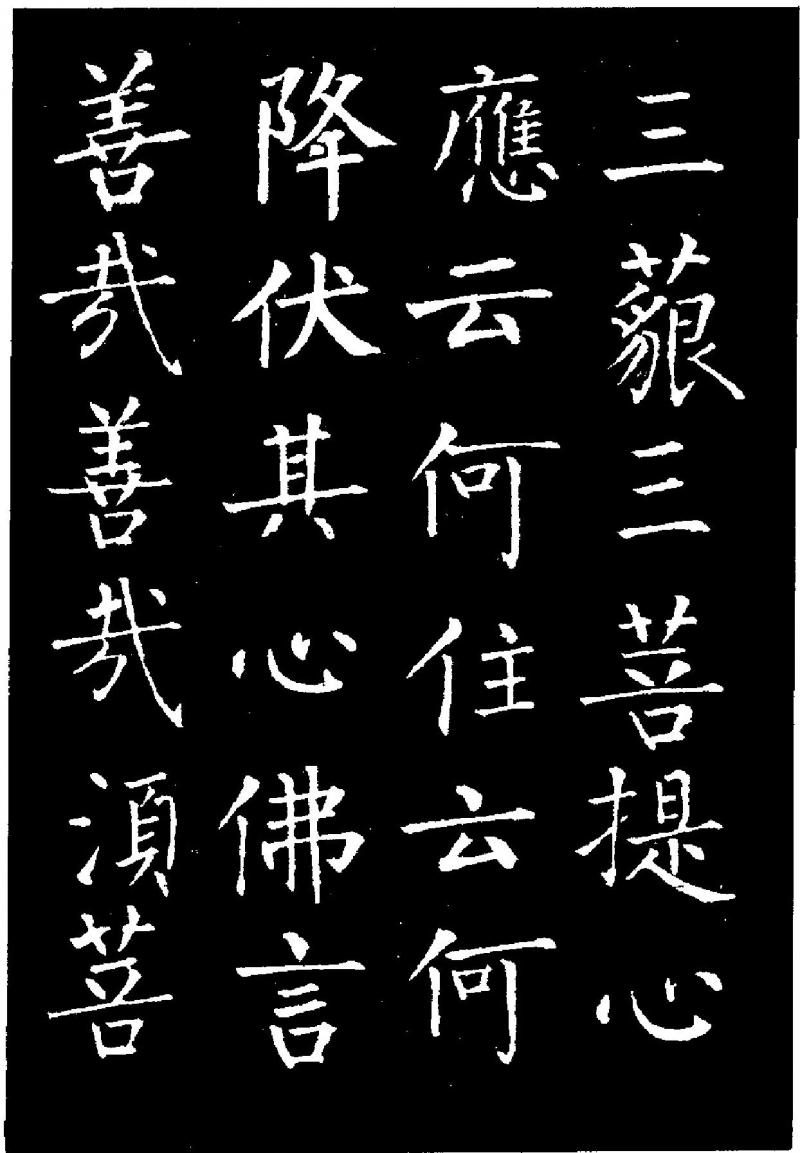 三藐三菩提心
應云何住云何
降伏其心佛言
善哉善哉須菩